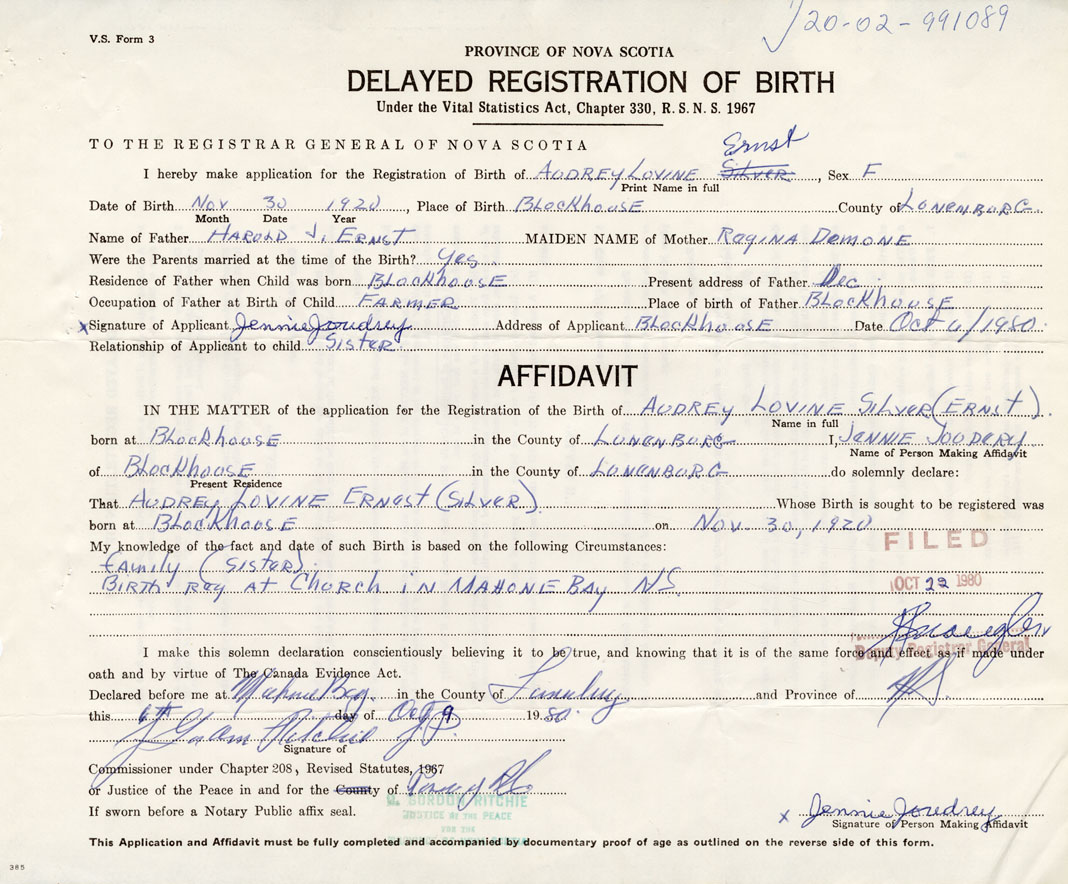 20-02-991089
V.S. Form 3
PROVINCE OF NOVA SCOTIA
DELAYED REGISTRATION OF BIRTH
Under the Vital Statistics Act, Chapter 330, R.S.N.S. 1967
TO THE REGISTRAR GENERAL OF NOVA SCOTIA
Ernst
I hereby make application for the Registration of Birth of AUDREY LOVINE SILVER, Sex F
Print Name in full
Date of Birth Nov 30 1920, Place of Birth BLOCKHOUSE County of LUNENBURG
Month Date Year
Name of Father HAROLD J. ERNST MAIDEN NAME of Mother REGINA DEMONE
Were the Parents married at the time of the Birth? Yes
Residence of Father when Child was born BLOCKHOUSE Present address of Father Dec
Occupation of Father at Birth of Child FARMER Place of birth of Father BLOCKHOUSE
x Signature of Applicant Jennie Joudrey Address of Applicant BLOCKHOUSE Date Oct 6/1980
Relationship of Applicant to child SISTER
AFFIDAVIT
IN THE MATTER of the application for the Registration of the Birth of AUDREY LOVINE SILVER (ERNST)
Name in full
born at BLOCKHOUSE in the County of LUNENBURG I, JENNIE JOUDERY
Name of Person Making Affidavit
of BLOCKHOUSE in the County of LUNENBURG do solemnly declare:
Present Residence
That AUDREY LOVINE ERNST (SILVER) Whose Birth is sought to be registered was
born at BLOCKHOUSE on Nov. 30, 1920
My knowledge of the fact and date of such Birth is based on the following Circumstances:
FILED
family (SISTER)
OCT 22 1980
BIRTH REG AT CHURCH IN MAHONE BAY NS
Deputy Registrar General
I make this solemn declaration conscientiously believing it to be true, and knowing that it is of the same force and effect as if made under
oath and by virtue of The Canada Evidence Act.
Declared before me at Mahone Bay in the County of Lunenburg and Province of NS
this 6th day of Oct 19 80
Ritchie J.P.
Signature of
Commissioner under Chapter 208, Revised Statutes, 1967
or Justice of the Peace in and for the County of
GORDON RITCHIE
JUSTICE OF THE PEACE
FOR THE
If sworn before a Notary Public affix seal.
x Jennie Joudrey
Signature of Person Making Affidavit
This Application and Affidavit must be fully completed and accompanied by documentary proof of age as outlined on the reverse side of this form.
385